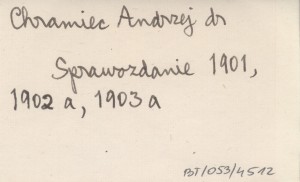 Chramiec Andrzej dr
Sprawozdanie 1901,
1902 a, 1903 a
BT/053/4512